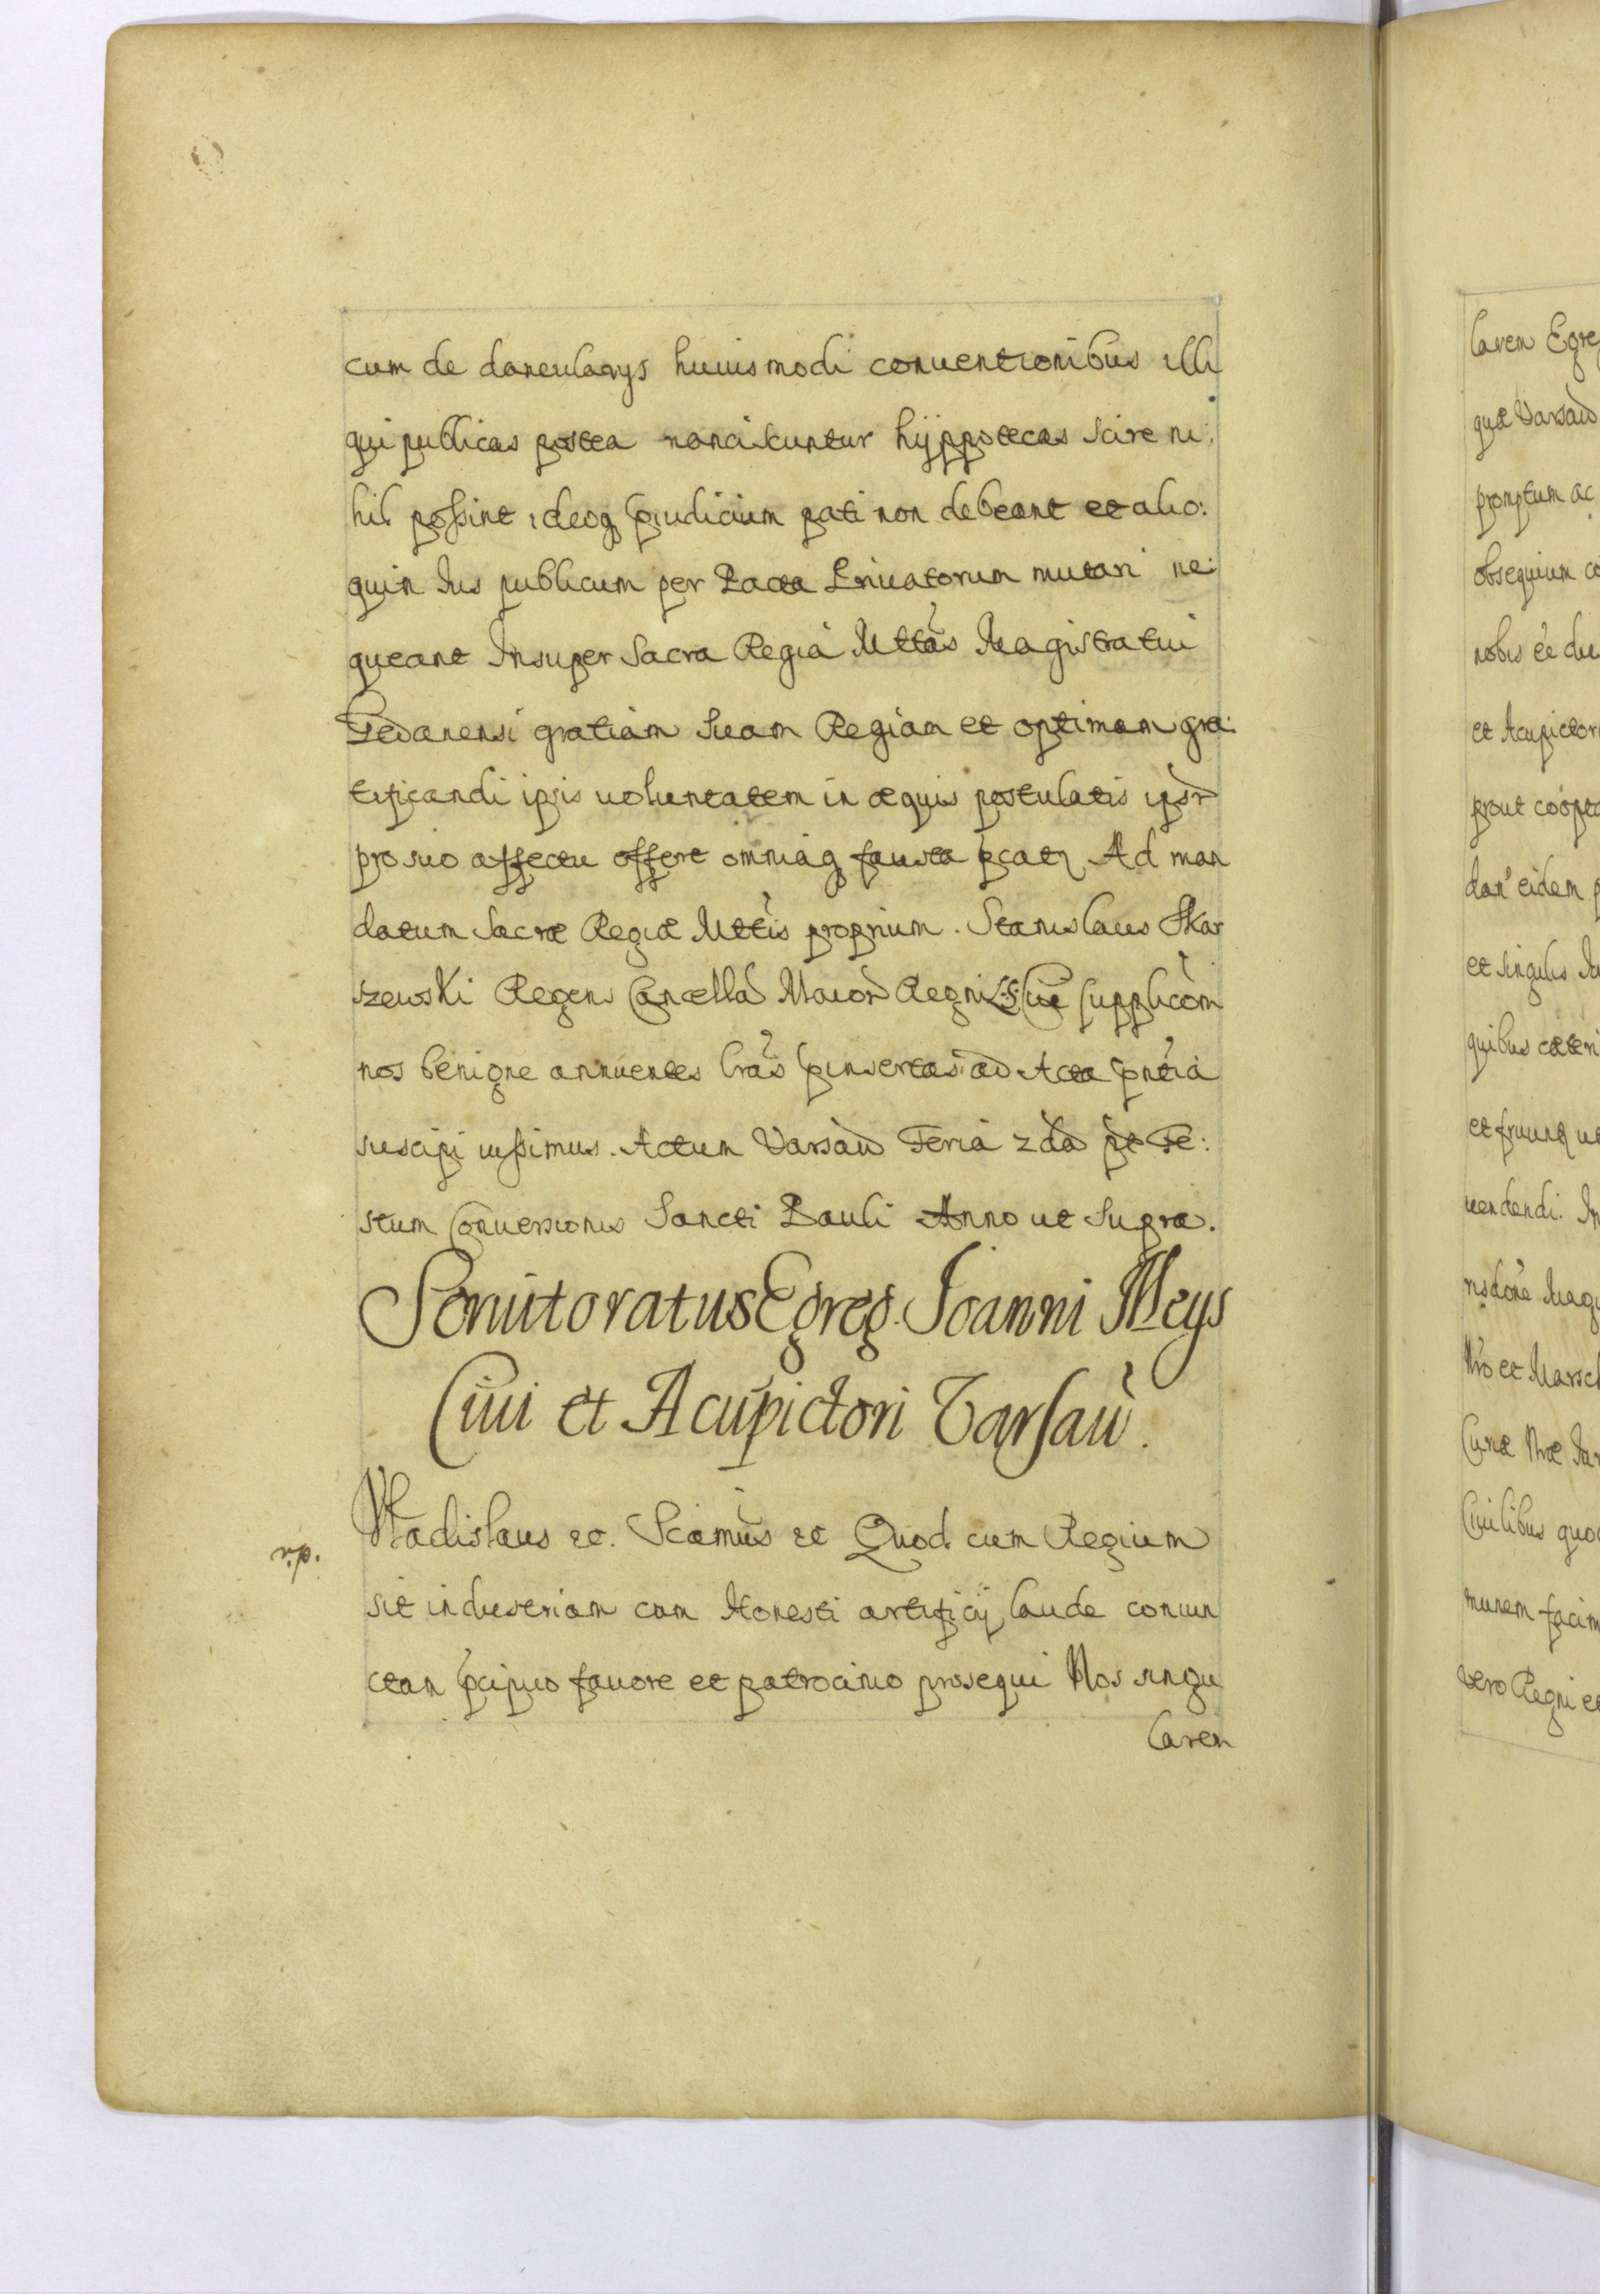 cum de danculargs huiusmodi conuentionibus illi
qui publicas postea nanciscuntur hijppotecas scire ni:
hil possint ideoq pręiudicium pati non debeant et alio:
quin Ius publicum per Pacta Priuatorum mutari ne:
queant Insuper Sacra Regia Mttas Magistratui
Gedanensi gratiam Suam Regiam et optimam gra:
tificandi ipsis uoluntatem in æquis postulatis ipsor
pro suo affectu offert omniaq fausta pcatr Ad man
datum Sacræ Regiæ Mttis proprium. Stanislaus Skar
szewski Regens Cancella Maior Regni L.S. Cui supplicom
nos benigne annuentes lras pinsertas ad Acta pntia
suscipi iussimus. Actum Varsau Feria 2da pt Fe:
stum Conuersionis Sancti Pauli Anno ut Supra.
Seruitoratus Egreg. Joanni Meys
Ciui et Acupictori Varsau.
r.p.
Vladislaus etc. Scamus etc Quod cum Regium
sit industriam cum Honesti artificij laude coniun
ctam pcipuo fauore et patrocinio prosequi Nos singu
larem
larem Egre
quæ Varsau
promptum ac
obsequium
nobis ee
et Acupictor
prout coopta
dan eidem
et singulis
quibus cæteri
et fruunt
uendendi. In
risdone Magi
Nro et Marsch
Curiæ Nræ
Ciuilibus quo
munem facim
vero Regni et